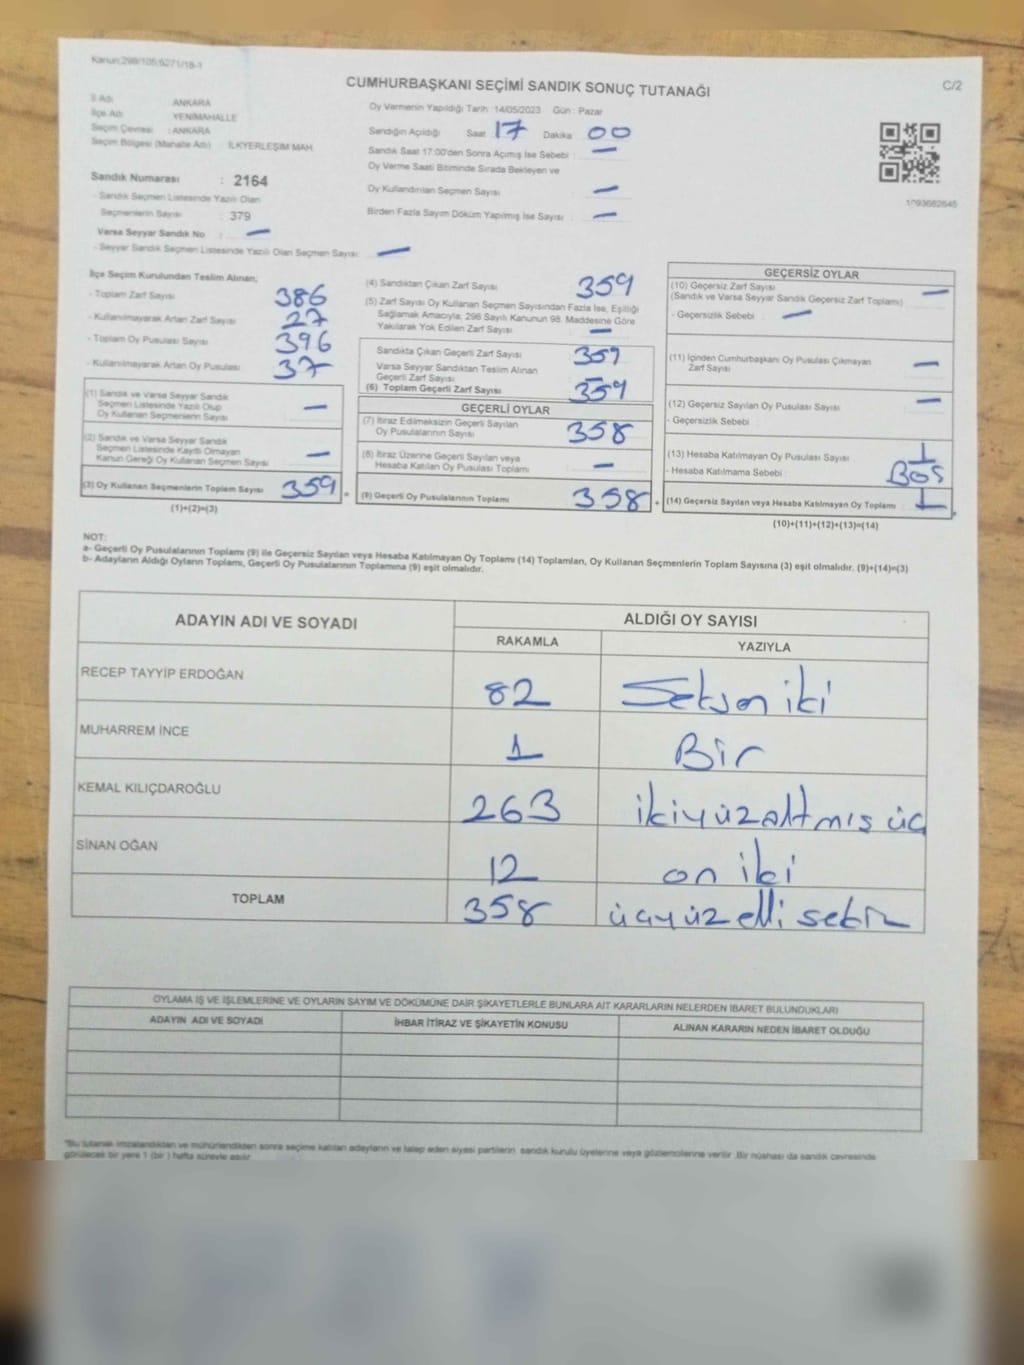 Kanun:298/105;6271/18-1
CUMHURBAŞKANI SEÇİMİ SANDIK SONUÇ TUTANAĞI
C/2
İl Adı ANKARA
İlçe Adı YENİMAHALLE
Seçim Çevresi : ANKARA
Seçim Bölgesi (Mahalle Adı) İLKYERLEŞİM MAH.
Sandık Numarası : 2164
- Sandık Seçmen Listesinde Yazılı Olan
Seçmenlerin Sayısı : 379
Varsa Seyyar Sandık No : —
- Seyyar Sandık Seçmen Listesinde Yazılı Olan Seçmen Sayısı: —
Oy Vermenin Yapıldığı Tarih :14/05/2023 Gün : Pazar
Sandığın Açıldığı Saat 17 Dakika 00
Sandık Saat 17:00'den Sonra Açılmış İse Sebebi : —
Oy Verme Saati Bitiminde Sırada Bekleyen ve
Oy Kullandırılan Seçmen Sayısı —
Birden Fazla Sayım Döküm Yapılmış İse Sayısı : —
1093682645
İlçe Seçim Kurulundan Teslim Alınan;
- Toplam Zarf Sayısı 386
- Kullanılmayarak Artan Zarf Sayısı 27
- Toplam Oy Pusulası Sayısı 396
- Kullanılmayarak Artan Oy Pusulası 37
(1) Sandık ve Varsa Seyyar Sandık
Seçmen Listesinde Yazılı Olup
Oy Kullanan Seçmenlerin Sayısı —
(2) Sandık ve Varsa Seyyar Sandık
Seçmen Listesinde Kaydı Olmayan
Kanun Gereği Oy Kullanan Seçmen Sayısı —
(3) Oy Kullanan Seçmenlerin Toplam Sayısı 359
(1)+(2)=(3)
(4) Sandıktan Çıkan Zarf Sayısı 359
(5) Zarf Sayısı Oy Kullanan Seçmen Sayısından Fazla İse, Eşitliği
Sağlamak Amacıyla, 298 Sayılı Kanunun 98. Maddesine Göre
Yakılarak Yok Edilen Zarf Sayısı —
Sandıkta Çıkan Geçerli Zarf Sayısı 359
Varsa Seyyar Sandıktan Teslim Alınan
Geçerli Zarf Sayısı —
(6) Toplam Geçerli Zarf Sayısı 359
GEÇERLİ OYLAR
(7) İtiraz Edilmeksizin Geçerli Sayılan
Oy Pusulalarının Sayısı 358
(8) İtiraz Üzerine Geçerli Sayılan veya
Hesaba Katılan Oy Pusulası Toplamı —
(9) Geçerli Oy Pusulalarının Toplamı 358
GEÇERSİZ OYLAR
(10) Geçersiz Zarf Sayısı —
(Sandık ve Varsa Seyyar Sandık Geçersiz Zarf Toplamı)
- Geçersizlik Sebebi : —
(11) İçinden Cumhurbaşkanı Oy Pusulası Çıkmayan
Zarf Sayısı —
(12) Geçersiz Sayılan Oy Pusulası Sayısı —
- Geçersizlik Sebebi :
(13) Hesaba Katılmayan Oy Pusulası Sayısı 1
- Hesaba Katılmama Sebebi : BOŞ
(14) Geçersiz Sayılan veya Hesaba Katılmayan Oy Toplamı 1
(10)+(11)+(12)+(13)=(14)
NOT:
a- Geçerli Oy Pusulalarının Toplamı (9) ile Geçersiz Sayılan veya Hesaba Katılmayan Oy Toplamı (14) Toplamları, Oy Kullanan Seçmenlerin Toplam Sayısına (3) eşit olmalıdır. (9)+(14)=(3)
b- Adayların Aldığı Oyların Toplamı, Geçerli Oy Pusulalarının Toplamına (9) eşit olmalıdır.
ADAYIN ADI VE SOYADI ALDIĞI OY SAYISI
RAKAMLA YAZIYLA
RECEP TAYYİP ERDOĞAN 82 Seksen iki
MUHARREM İNCE 1 Bir
KEMAL KILIÇDAROĞLU 263 ikiyüzaltmış üç
SİNAN OĞAN 12 on iki
TOPLAM 358 üçyüz elli sekiz
OYLAMA İŞ VE İŞLEMLERİNE VE OYLARIN SAYIM VE DÖKÜMÜNE DAİR ŞİKAYETLERLE BUNLARA AİT KARARLARIN NELERDEN İBARET BULUNDUKLARI
ADAYIN ADI VE SOYADI İHBAR İTİRAZ VE ŞİKAYETİN KONUSU ALINAN KARARIN NEDEN İBARET OLDUĞU
"Bu tutanak imzalandıktan ve mühürlendikten sonra seçime katılan adayların ve talep eden siyasi partilerin sandık kurulu üyelerine veya gözlemcilerine verilir .Bir nüshası da sandık çevresinde
görülecek bir yere 1 (bir ) hafta süreyle asılır.